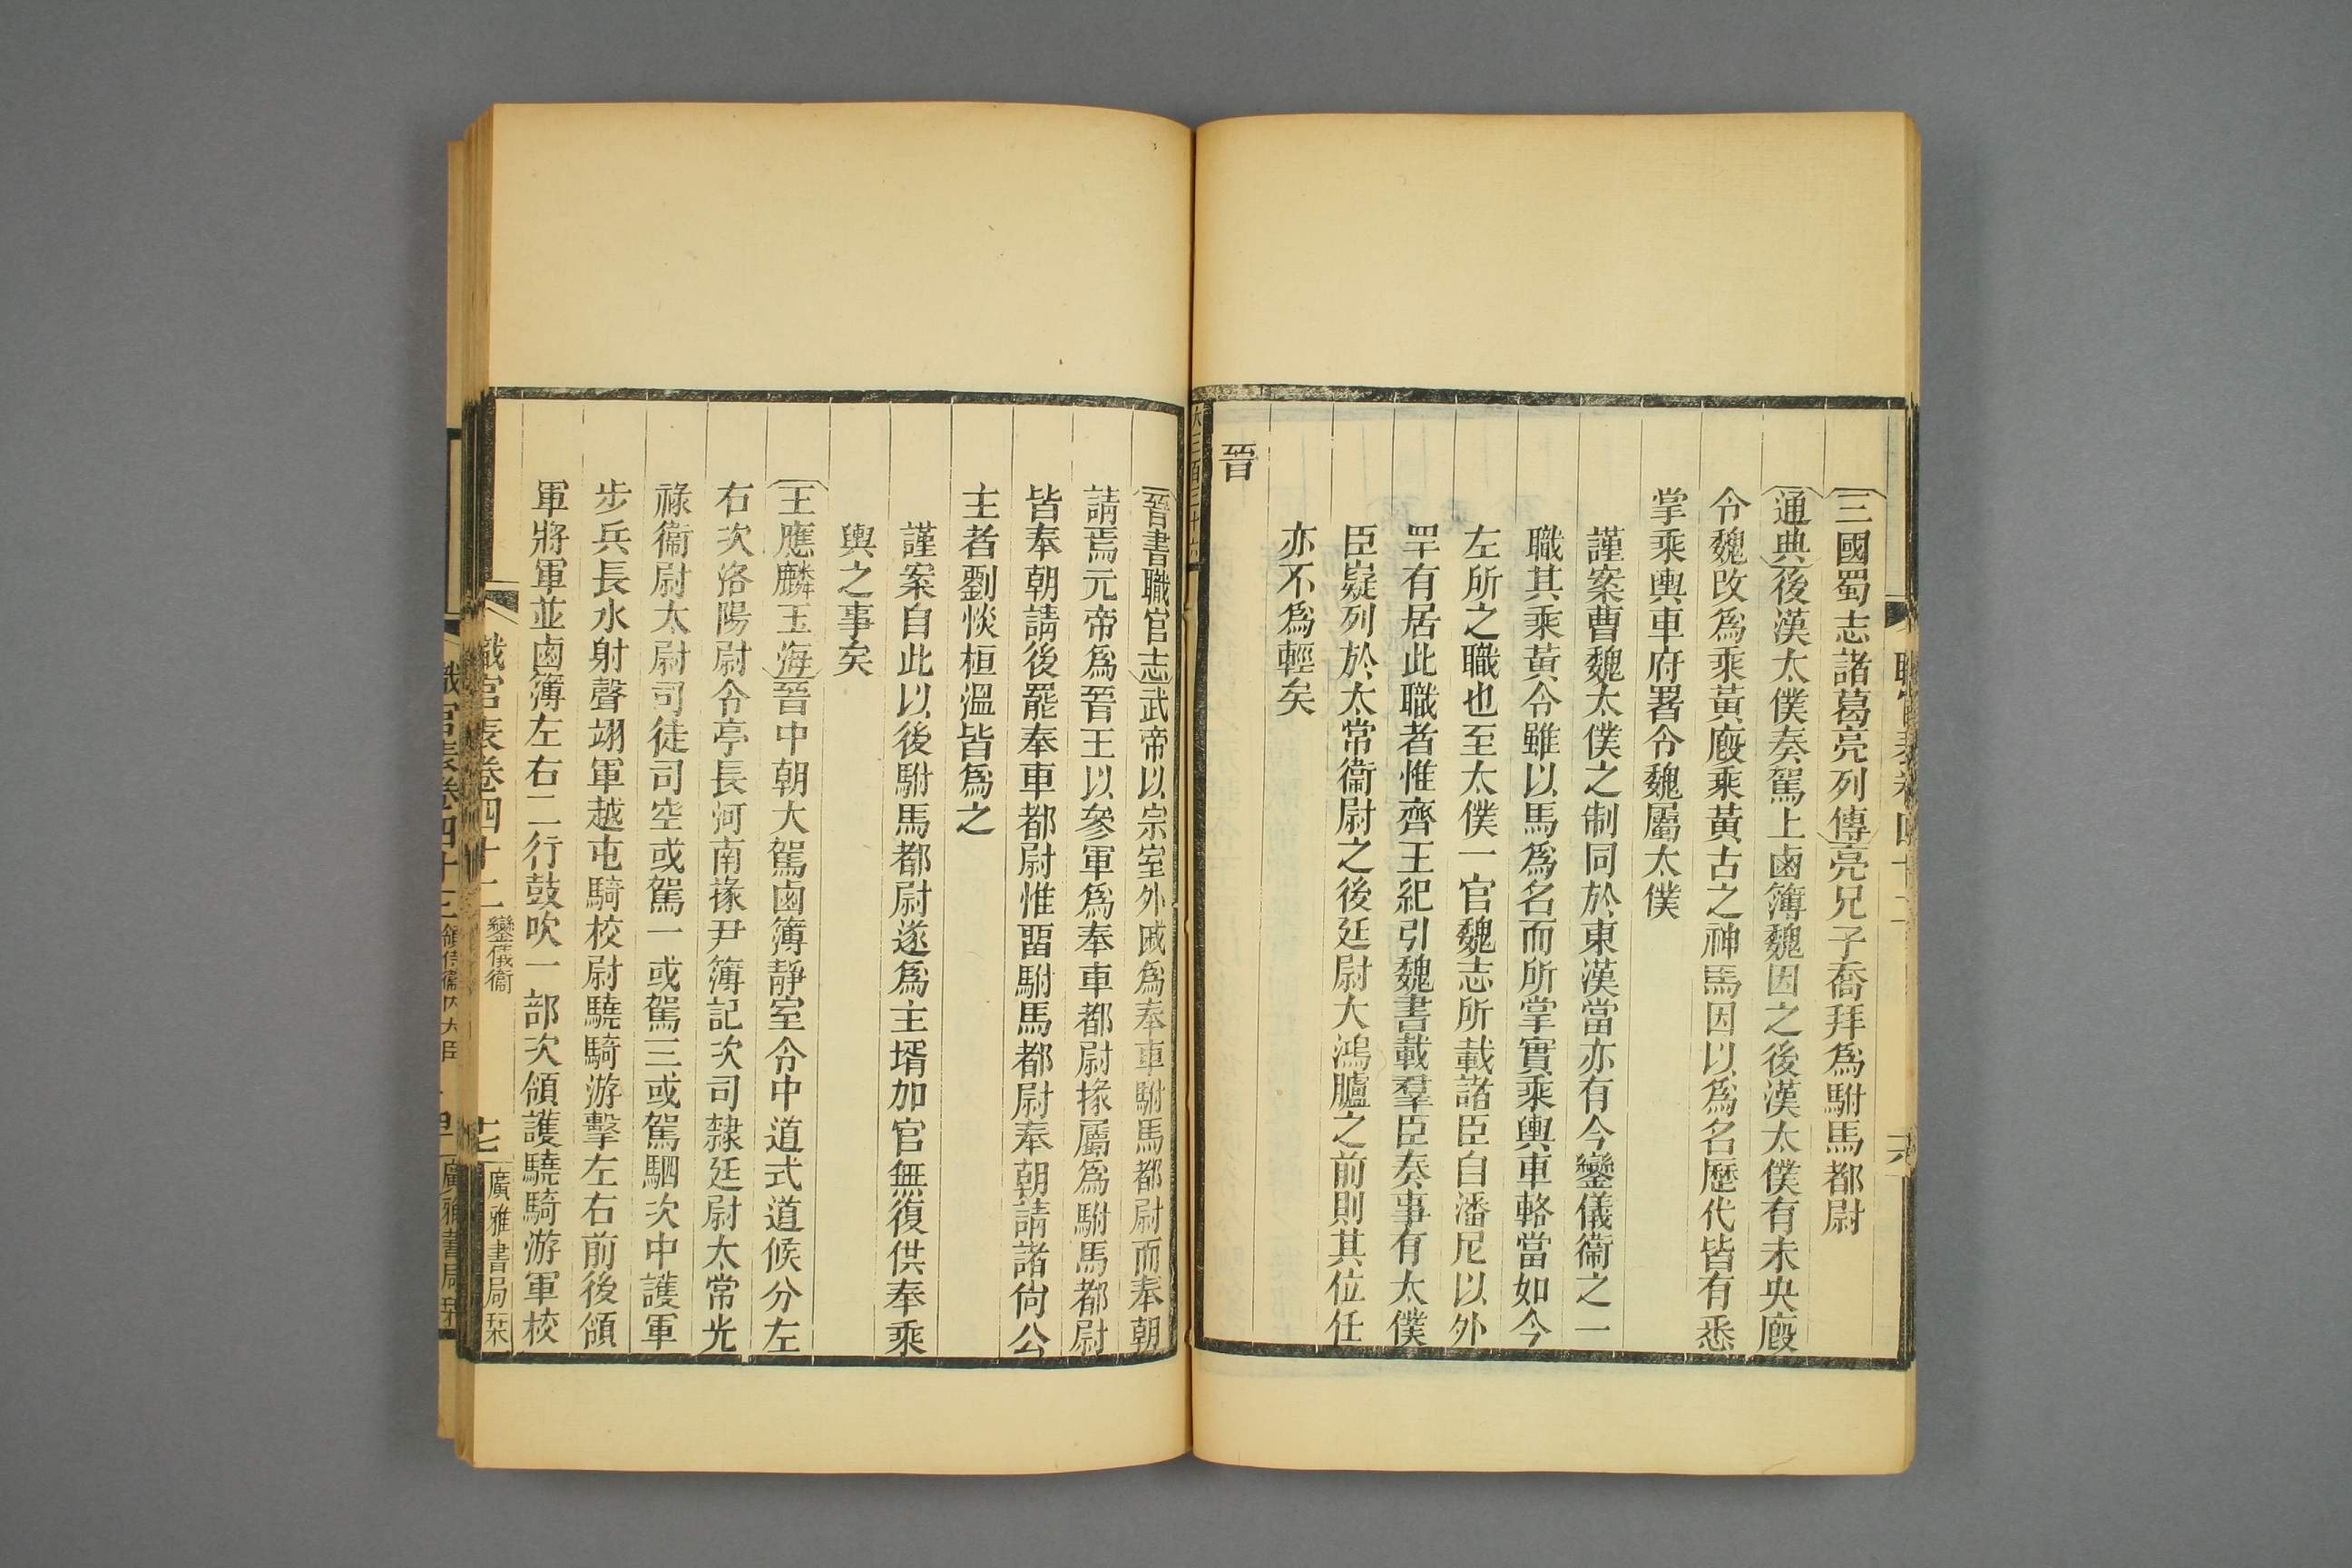 三國蜀志諸葛亮列傳亮兄子喬拜爲駙馬都尉
通典後漢太僕奏駕上鹵簿魏因之後漢太僕有未央廄
令魏改爲乘黃廄乘黃古之神馬因以爲名歷代皆有悉
掌乘輿車府署令魏屬太僕
謹案曹魏太僕之制同於東漢當亦有今鑾儀衞之一
職其乘黃令雖以馬爲名而所掌實乘輿車輅當如今
左所之職也至太僕一官魏志所載諸臣自潘尼以外
罕有居此職者惟齊王紀引魏書載羣臣奏事有太僕
臣嶷列於太常衞尉之後廷尉大鴻臚之前則其位任
亦不爲輕矣
晉
晉書職官志武帝以宗室外戚爲奉車駙馬都尉而奉朝
請焉元帝爲晉王以參軍爲奉車都尉掾屬爲駙馬都尉
皆奉朝請後罷奉車都尉惟畱駙馬都尉奉朝請諸尙公
主者劉惔桓溫皆爲之
謹案自此以後駙馬都尉遂爲主壻加官無復供奉乘
輿之事矣
王應麟玉海晉中朝大駕鹵簿靜室令中道式道候分左
右次洛陽尉令亭長河南掾尹簿記次司隸廷尉太常光
祿衞尉太尉司徒司空或駕一或駕三或駕駟次中護軍
步兵長水射聲翊軍越屯騎校尉驍騎游擊左右前後領
軍將軍並鹵簿左右二行鼓吹一部次領護驍騎游軍校
職官表卷四十二 鑾儀衞 十七 廣雅書局栞